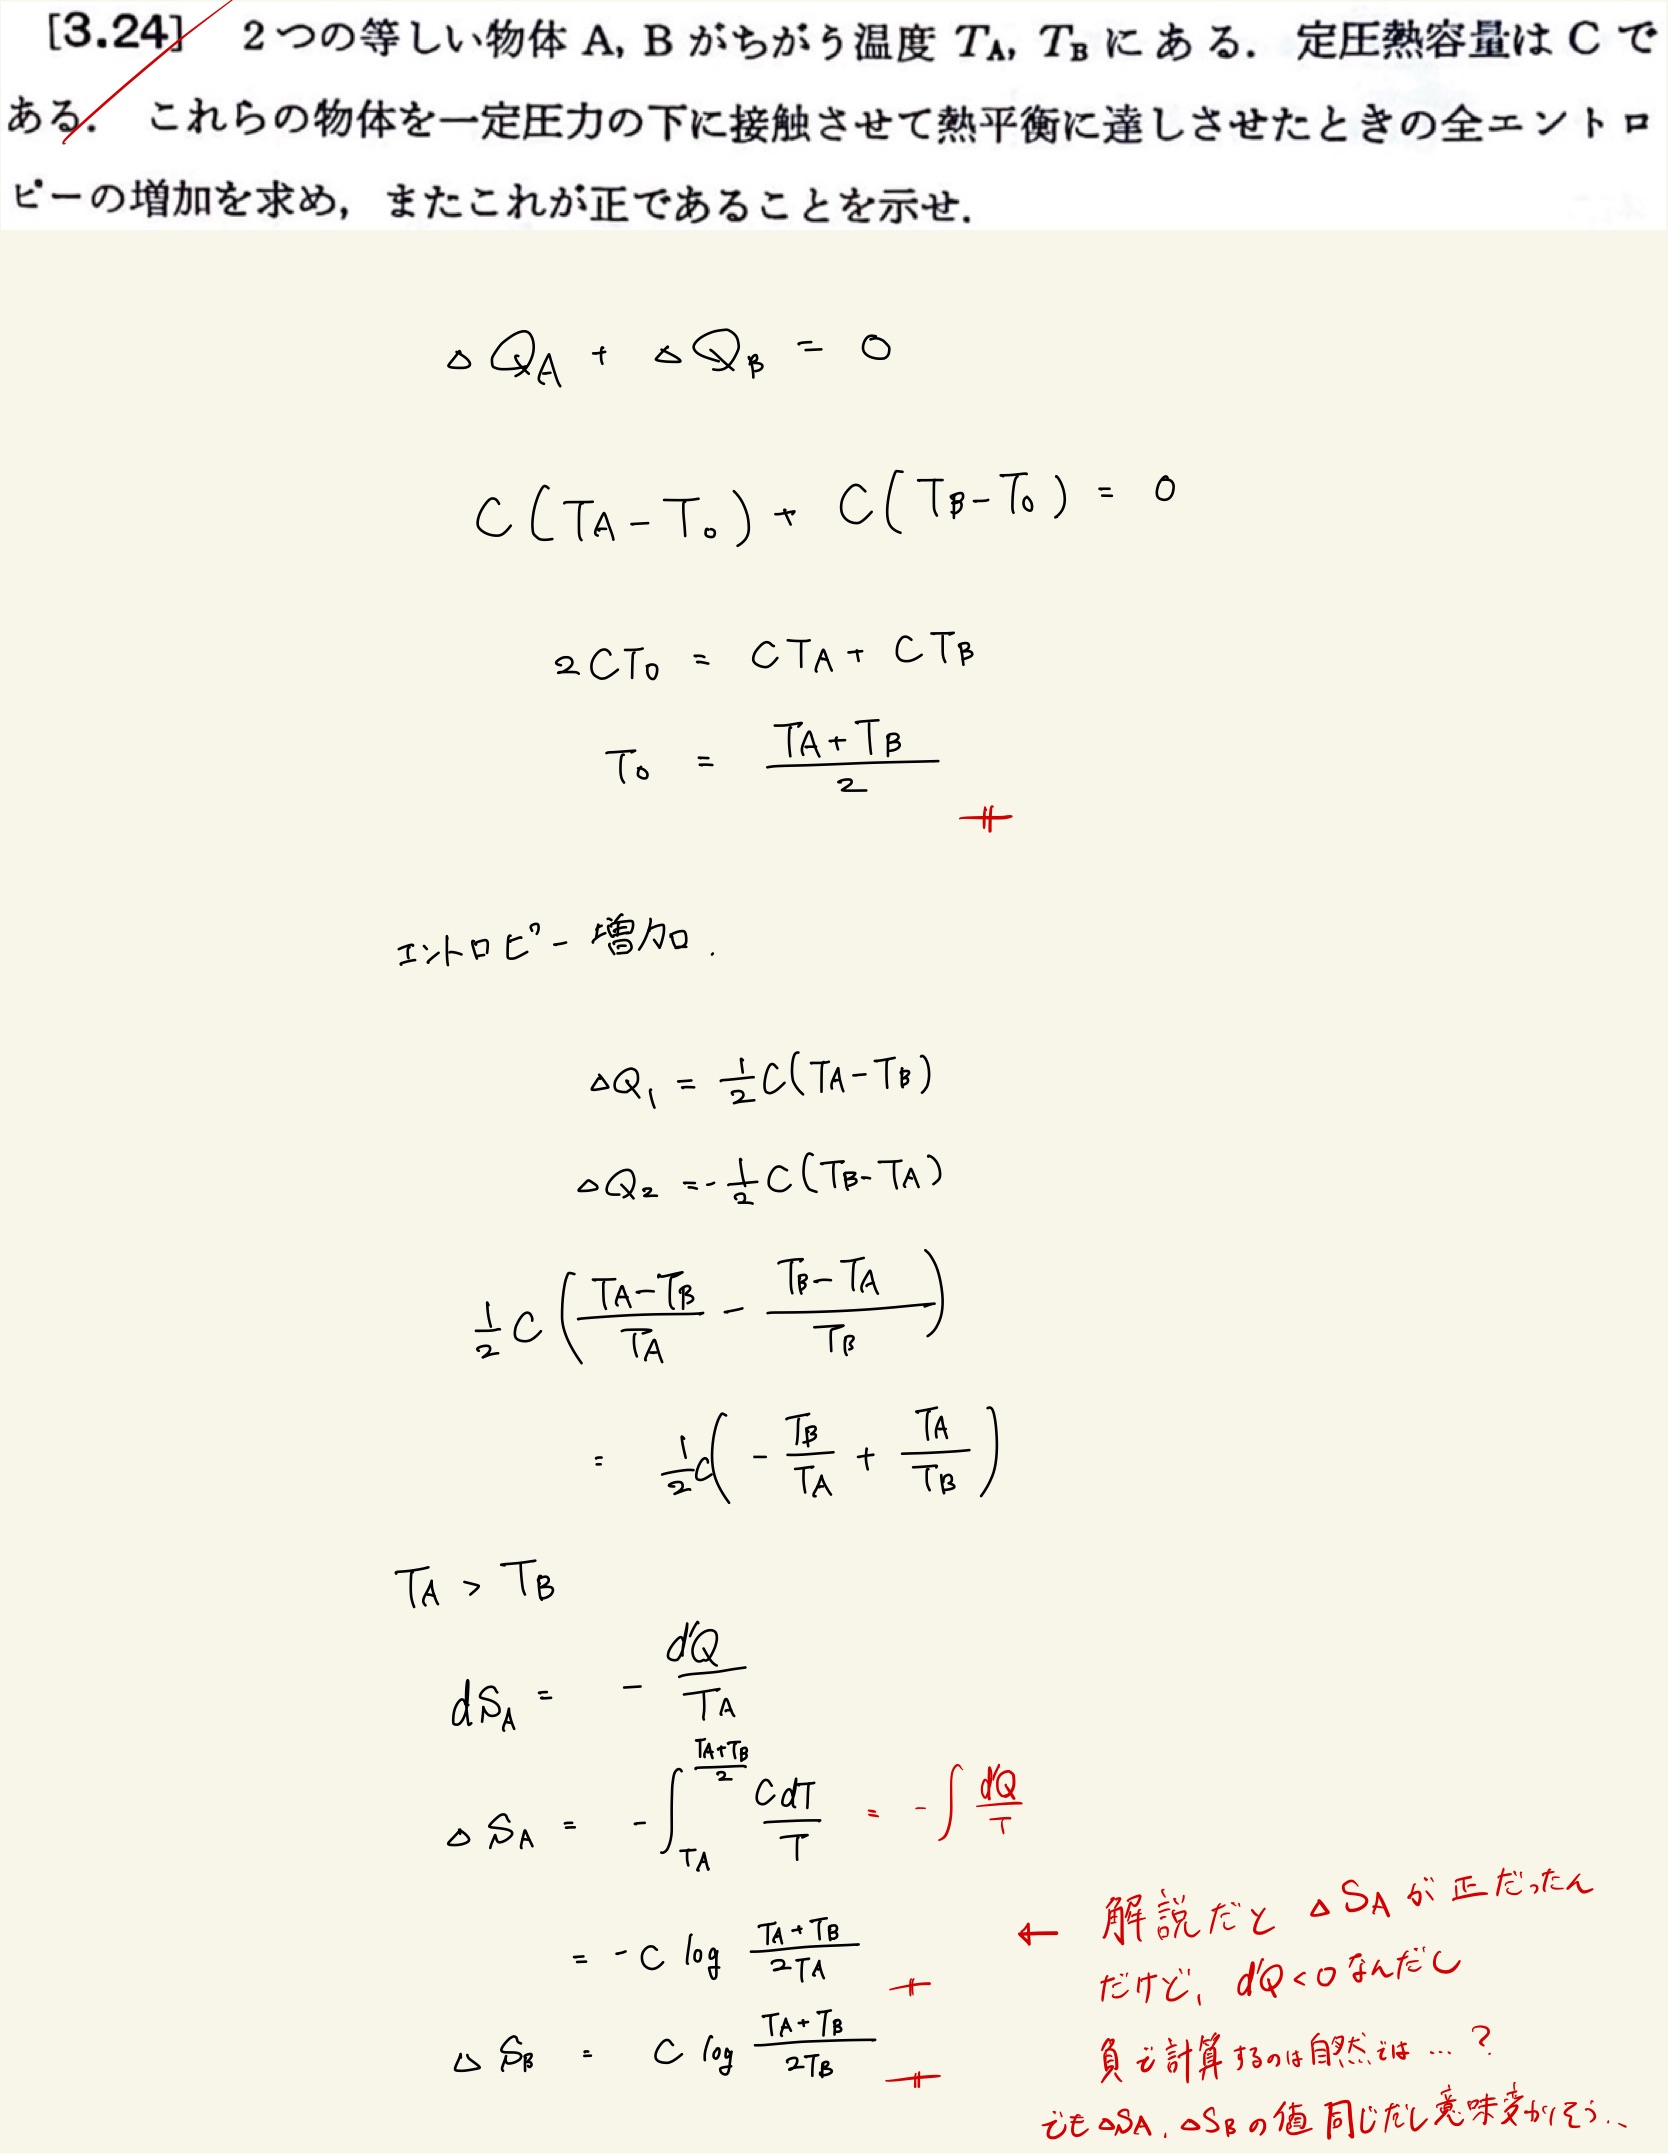 [3.24] 2つの等しい物体 A, B がちがう温度 T_A, T_B にある. 定圧熱容量は C で
ある. これらの物体を一定圧力の下に接触させて熱平衡に達しさせたときの全エントロ
ピーの増加を求め, またこれが正であることを示せ.
△Q_A + △Q_B = 0
C(T_A - T_0) + C(T_B - T_0) = 0
2CT_0 = CT_A + CT_B
T_0 = (T_A + T_B)/2
エントロピー増加.
△Q_1 = 1/2 C(T_A - T_B)
△Q_2 = -1/2 C(T_B - T_A)
1/2 C ((T_A - T_B)/T_A - (T_B - T_A)/T_B)
= 1/2 C(- T_B/T_A + T_A/T_B)
T_A > T_B
dS_A = - d'Q/T_A
△S_A = -∫_{T_A}^{(T_A+T_B)/2} CdT/T = -∫ d'Q/T
= -C log (T_A + T_B)/2T_A
△S_B = C log (T_A + T_B)/2T_B
← 解説だと △S_A が 正だったん
だけど、d'Q < 0 なんだし
負で計算するのは自然では…?
でも △S_A, △S_B の値 同じだし意味変わりそう..